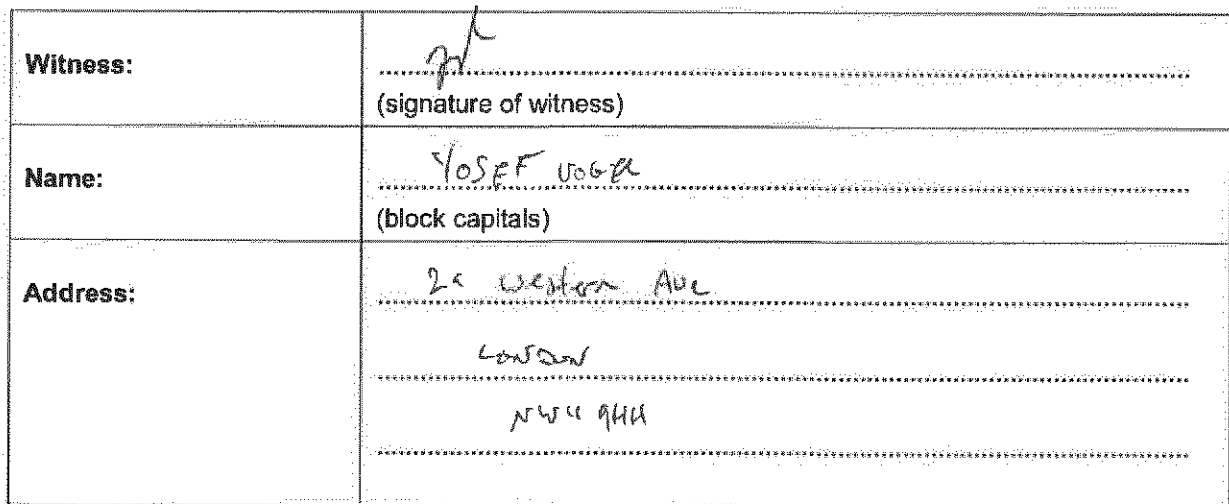 Witness:
(signature of witness)
Name: YOSEF VOGEL
(block capitals)
Address: 2a Western Ave
LONDON
NW11 9HH